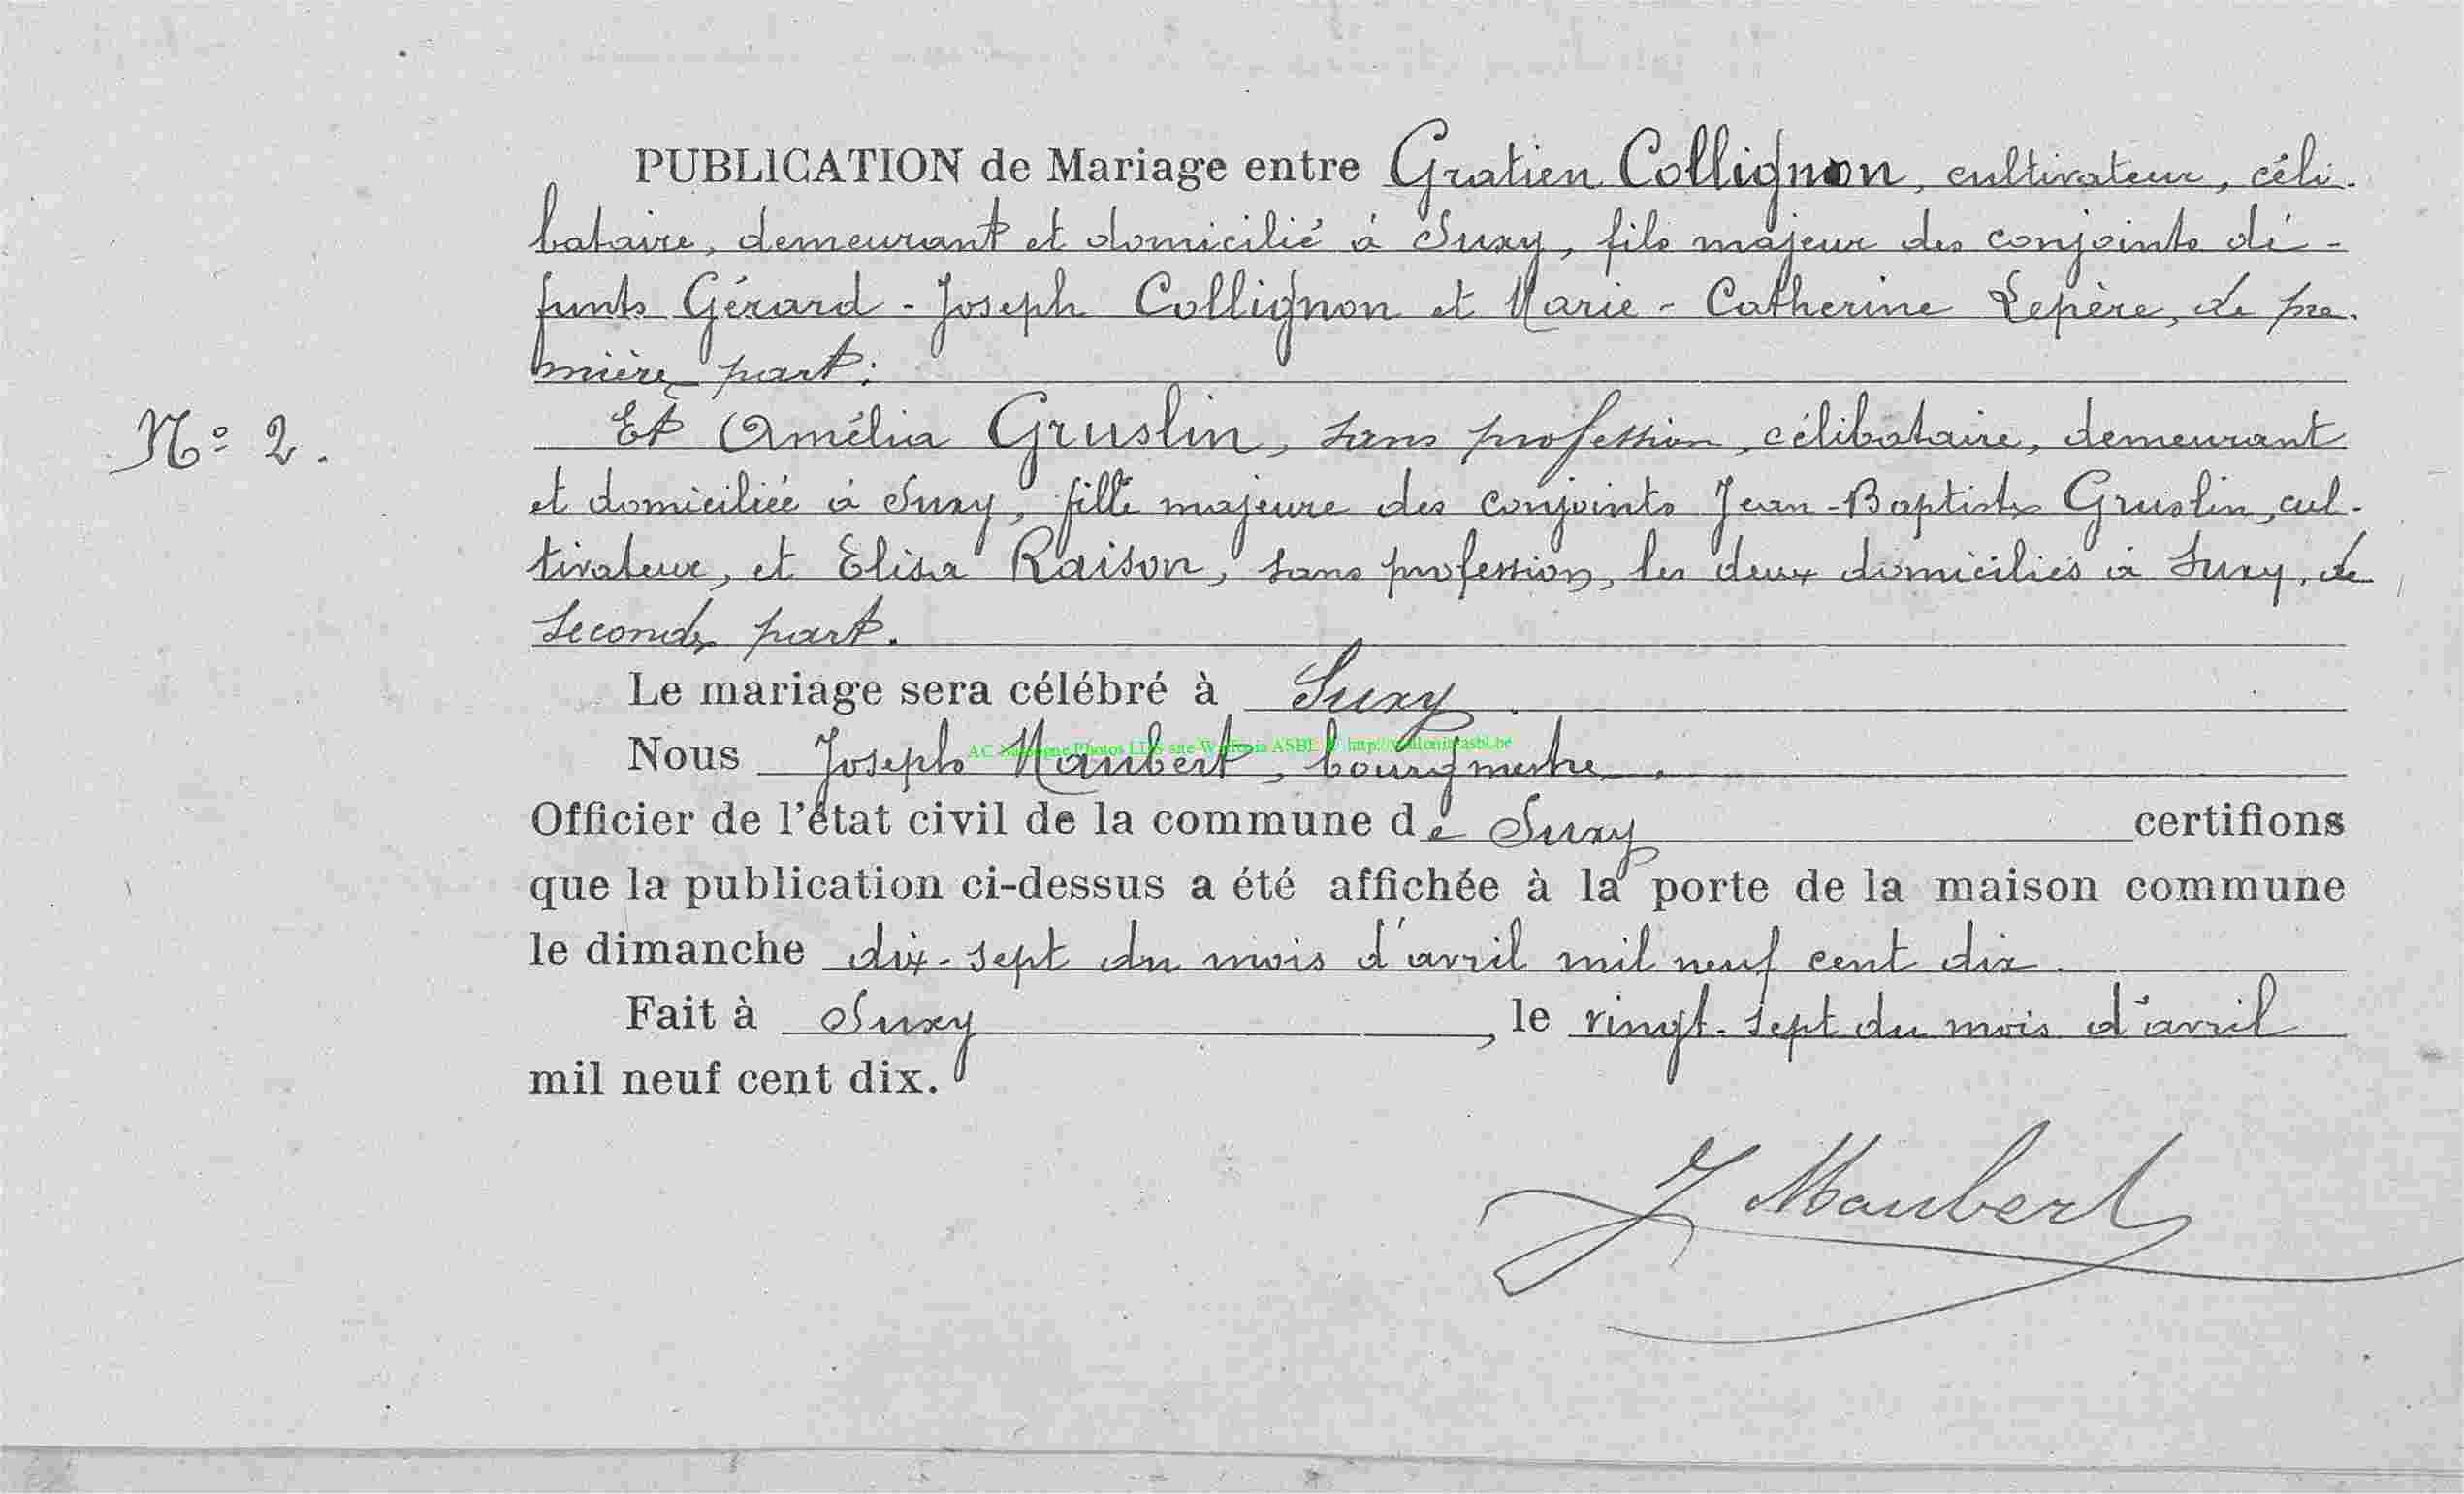 PUBLICATION de Mariage entre Gratien Collignon, cultivateur, céli-
bataire, demeurant et domicilié à Suxy, fils majeur des conjoints dé-
funts Gérard - Joseph Collignon et Marie - Catherine Lepère, de pre-
mière part;
N° 2.
Et Amélia Gruslin, sans profession, célibataire, demeurant
et domiciliée à Suxy, fille majeure des conjoints Jean-Baptiste Gruslin, cul-
tivateur, et Elisa Raison, sans profession, les deux domiciliés à Suxy, de
seconde part.
Le mariage sera célébré à Suxy.
Nous Joseph Maubert, bourgmestre,
AC Photos LDS site Wallonia ASBL http://wallonia-asbl.be
Officier de l'état civil de la commune de Suxy certifions
que la publication ci-dessus a été affichée à la porte de la maison commune
le dimanche dix-sept du mois d'avril mil neuf cent dix.
Fait à Suxy, le vingt-sept du mois d'avril
mil neuf cent dix.
J Maubert